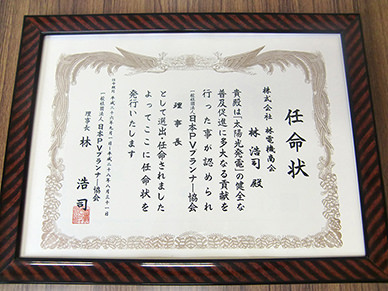 任命状
株式会社 林電機商会
林 浩司 殿
貴殿は「太陽光発電」の健全な
普及促進に多大なる貢献を
行った事が認められ
一般社団法人 日本PVプランナー協会
理事長
として選出・任命されました
よってここに任命状を
発行いたします
一般社団法人 日本PVプランナー協会
理事長 林 浩司